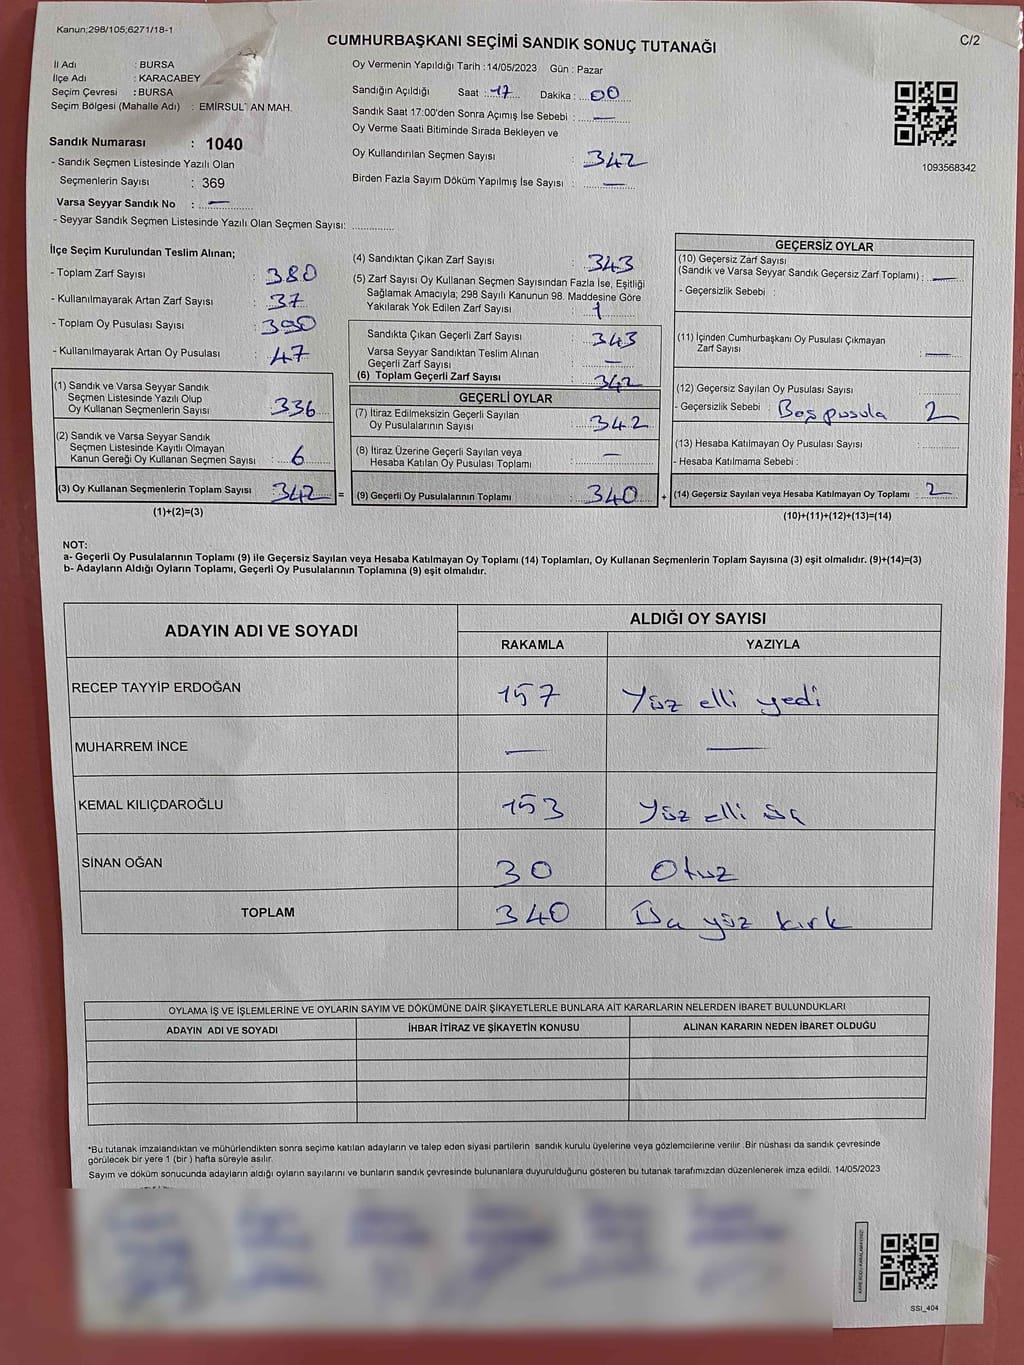 Kanun;298/105;6271/18-1
C/2
CUMHURBAŞKANI SEÇİMİ SANDIK SONUÇ TUTANAĞI
İl Adı : BURSA
İlçe Adı : KARACABEY
Seçim Çevresi : BURSA
Seçim Bölgesi (Mahalle Adı) : EMİRSUL AN MAH.
Sandık Numarası : 1040
- Sandık Seçmen Listesinde Yazılı Olan
Seçmenlerin Sayısı : 369
Varsa Seyyar Sandık No : —
- Seyyar Sandık Seçmen Listesinde Yazılı Olan Seçmen Sayısı: ..............
Oy Vermenin Yapıldığı Tarih :14/05/2023 Gün : Pazar
Sandığın Açıldığı Saat : 17 Dakika : 00
Sandık Saat 17:00'den Sonra Açımış İse Sebebi : —
Oy Verme Saati Bitiminde Sırada Bekleyen ve
Oy Kullandırılan Seçmen Sayısı : 342
Birden Fazla Sayım Döküm Yapılmış İse Sayısı : —
1093568342
İlçe Seçim Kurulundan Teslim Alınan;
- Toplam Zarf Sayısı : 380
- Kullanılmayarak Artan Zarf Sayısı : 37
- Toplam Oy Pusulası Sayısı : 390
- Kullanılmayarak Artan Oy Pusulası : 47
(1) Sandık ve Varsa Seyyar Sandık
Seçmen Listesinde Yazılı Olup
Oy Kullanan Seçmenlerin Sayısı : 336
(2) Sandık ve Varsa Seyyar Sandık
Seçmen Listesinde Kayıtlı Olmayan
Kanun Gereği Oy Kullanan Seçmen Sayısı : 6
(3) Oy Kullanan Seçmenlerin Toplam Sayısı : 342 =
(1)+(2)=(3)
(4) Sandıktan Çıkan Zarf Sayısı : 343
(5) Zarf Sayısı Oy Kullanan Seçmen Sayısından Fazla İse, Eşitliği
Sağlamak Amacıyla; 298 Sayılı Kanunun 98. Maddesine Göre
Yakılarak Yok Edilen Zarf Sayısı : 1
Sandıkta Çıkan Geçerli Zarf Sayısı : 343
Varsa Seyyar Sandıktan Teslim Alınan
Geçerli Zarf Sayısı : —
(6) Toplam Geçerli Zarf Sayısı : 342
GEÇERLİ OYLAR
(7) İtiraz Edilmeksizin Geçerli Sayılan
Oy Pusulalarının Sayısı : 342
(8) İtiraz Üzerine Geçerli Sayılan veya
Hesaba Katılan Oy Pusulası Toplamı : —
(9) Geçerli Oy Pusulalarının Toplamı : 340 +
GEÇERSİZ OYLAR
(10) Geçersiz Zarf Sayısı
(Sandık ve Varsa Seyyar Sandık Geçersiz Zarf Toplamı) : —
- Geçersizlik Sebebi :
(11) İçinden Cumhurbaşkanı Oy Pusulası Çıkmayan
Zarf Sayısı : —
(12) Geçersiz Sayılan Oy Pusulası Sayısı
- Geçersizlik Sebebi : Boş pusula 2
(13) Hesaba Katılmayan Oy Pusulası Sayısı
- Hesaba Katılmama Sebebi :
(14) Geçersiz Sayılan veya Hesaba Katılmayan Oy Toplamı : 2
(10)+(11)+(12)+(13)=(14)
NOT:
a- Geçerli Oy Pusulalarının Toplamı (9) ile Geçersiz Sayılan veya Hesaba Katılmayan Oy Toplamı (14) Toplamları, Oy Kullanan Seçmenlerin Toplam Sayısına (3) eşit olmalıdır. (9)+(14)=(3)
b- Adayların Aldığı Oyların Toplamı, Geçerli Oy Pusulalarının Toplamına (9) eşit olmalıdır.
ADAYIN ADI VE SOYADI
ALDIĞI OY SAYISI
RAKAMLA YAZIYLA
RECEP TAYYİP ERDOĞAN 157 Yüz elli yedi
MUHARREM İNCE — —
KEMAL KILIÇDAROĞLU 153 Yüz elli üç
SİNAN OĞAN 30 Otuz
TOPLAM 340 Üç yüz kırk
OYLAMA İŞ VE İŞLEMLERİNE VE OYLARIN SAYIM VE DÖKÜMÜNE DAİR ŞİKAYETLERLE BUNLARA AİT KARARLARIN NELERDEN İBARET BULUNDUKLARI
ADAYIN ADI VE SOYADI İHBAR İTİRAZ VE ŞİKAYETİN KONUSU ALINAN KARARIN NEDEN İBARET OLDUĞU
*Bu tutanak imzalandıktan ve mühürlendikten sonra seçime katılan adayların ve talep eden siyasi partilerin sandık kurulu üyelerine veya gözlemcilerine verilir .Bir nüshası da sandık çevresinde
görülecek bir yere 1 (bir ) hafta süreyle asılır.
Sayım ve döküm sonucunda adayların aldığı oyların sayılarını ve bunların sandık çevresinde bulunanlara duyurulduğunu gösteren bu tutanak tarafımızdan düzenlenerek imza edildi. 14/05/2023
SSI_404